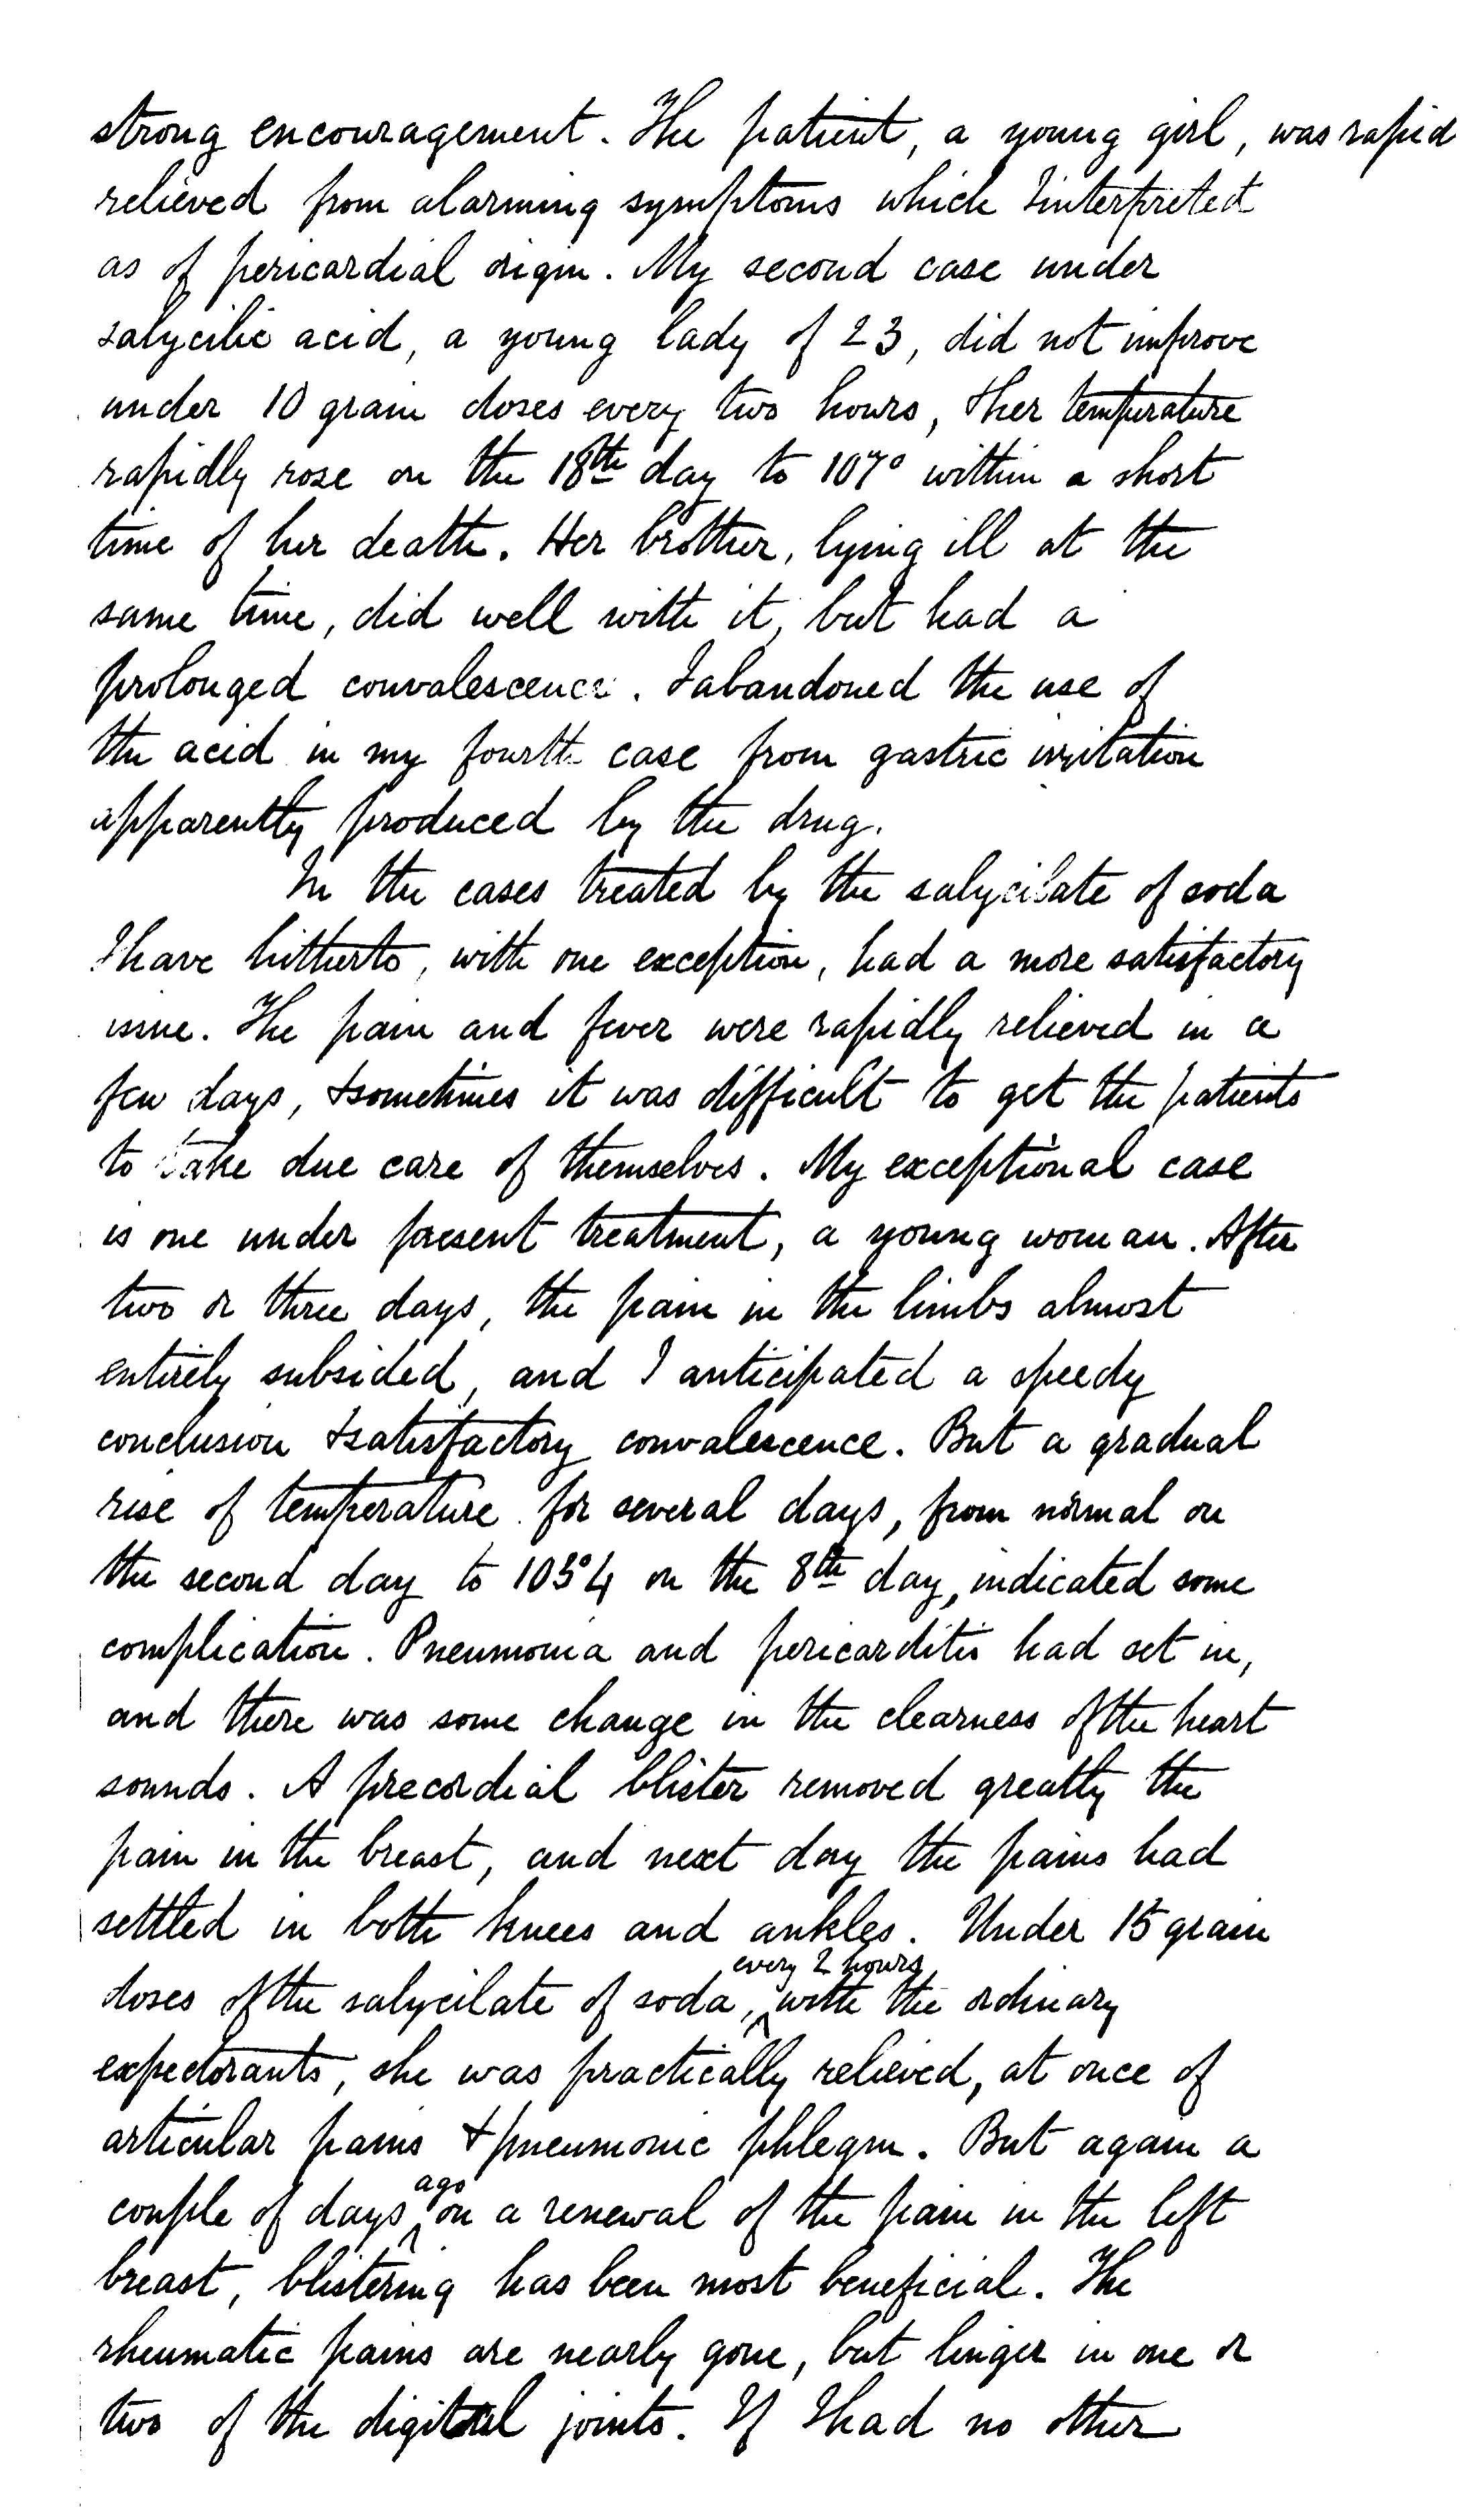 strong encouragement. The patient, a young girl, was rapid
relieved from alarming symptoms which I interpreted
as of pericardial origin. My second case under
salycilic acid, a young lady of 23, did not improve
under 10 grain doses every two hours, & her temperature
rapidly rose on the 18th day to 107° within a short
time of her death. Her brother, lying ill at the
same time, did well with it, but had a
prolonged convalescence. I abandoned the use of
the acid in my fourth case from gastric irritation
apparently produced by the drug.
In the cases treated by the salycilate of soda
I have hitherto, with one exception, had a more satisfactory
issue. The pain and fever were rapidly relieved in a
few days, & sometimes it was difficult to get the patients
to take due care of themselves. My exceptional case
is one under present treatment, a young woman. After
two or three days, the pain in the limbs almost
entirely subsided, and I anticipated a speedy
conclusion & satisfactory convalescence. But a gradual
rise of temperature for several days, from normal on
the second day to 103°4 on the 8th day, indicated some
complication. Pneumonia and pericarditis had set in,
and there was some change in the clearness of the heart
sounds. A precordial blister removed greatly the
pain in the breast, and next day the pains had
settled in both knees and ankles. Under 15 grain
every 2 hours
doses of the salycilate of soda, ^ with the ordinary
expectorants, she was practically relieved, at once of
articular pains & pneumonic phlegm. But again a
ago
couple of days ^ on a renewal of the pain in the left
breast, blistering has been most beneficial. The
rheumatic pains are nearly gone, but linger in one or
two of the digital joints. If I had no other